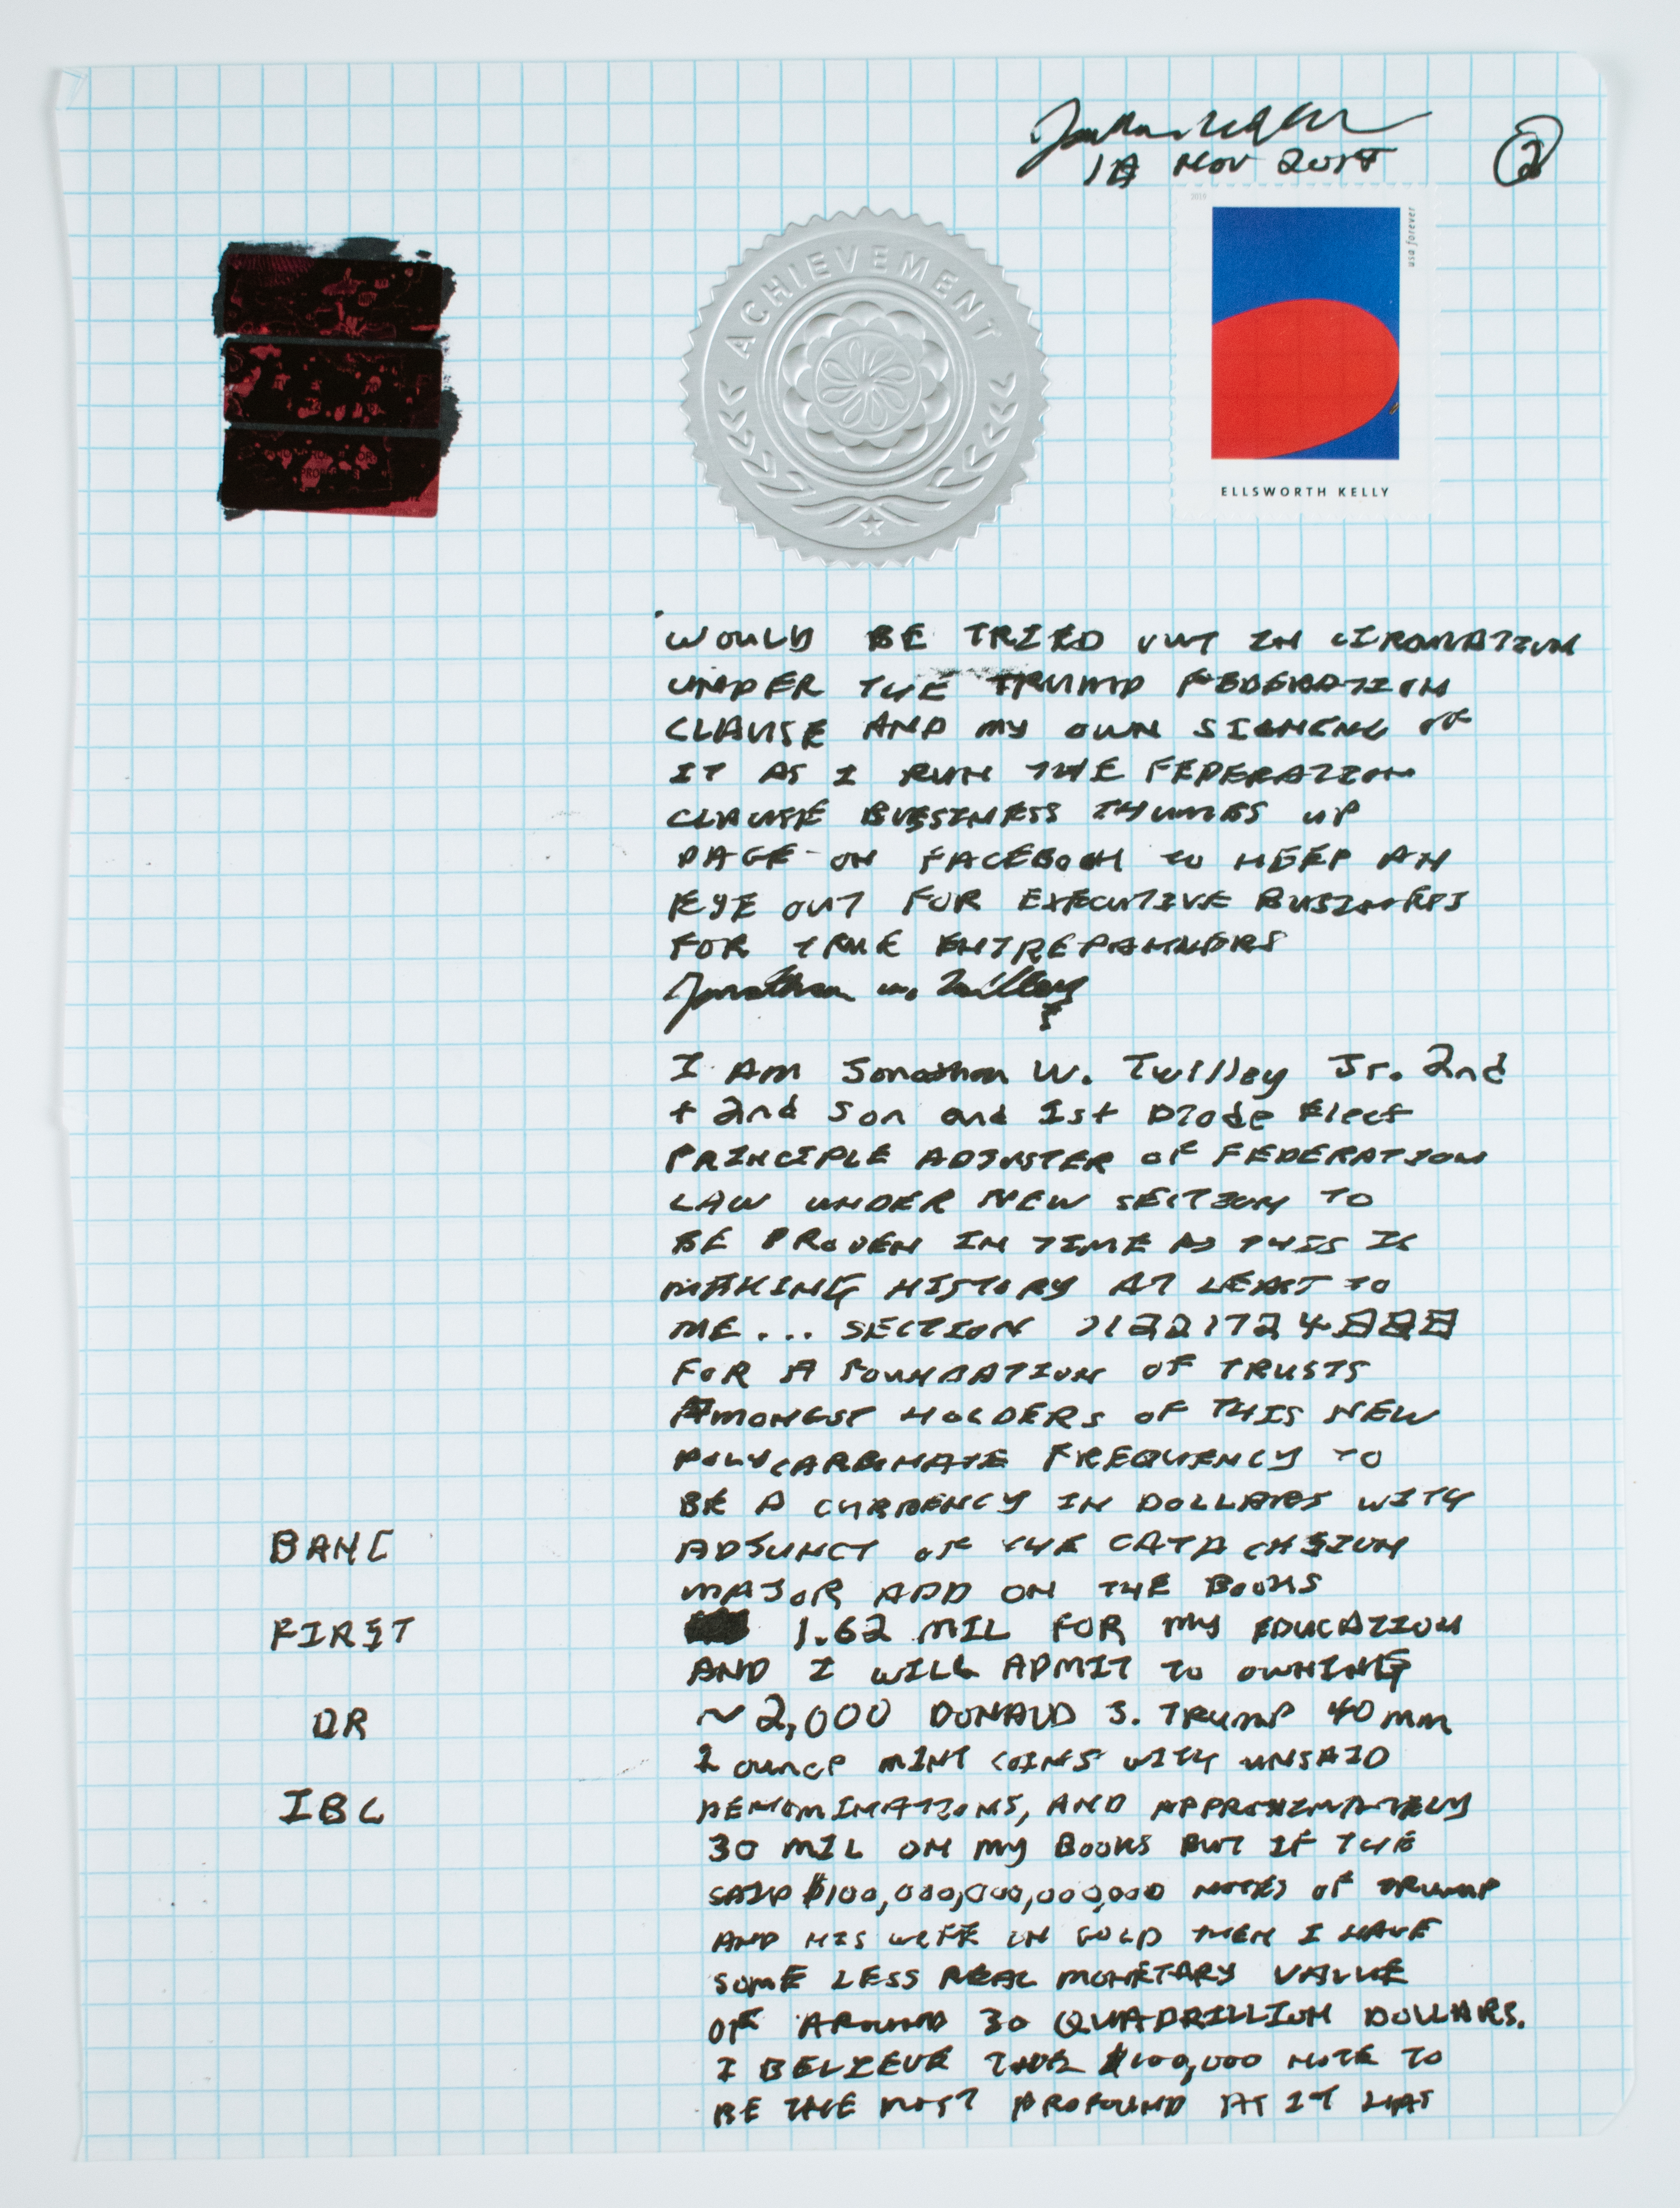 NOV
2
2019
usa forever
ACHIEVEMENT
ELLSWORTH KELLY
WOULD BE TRIED OUT IN
UNDER THE TRUMP FEDERATION
CLAUSE AND MY OWN OF
IT AS I RUN THE FEDERATION
CLAUSE BUSINESS THUMBS UP
PAGE ON FACEBOOK TO KEEP AN
EYE OUT FOR EXECUTIVE
FOR TRUE
Jonathan W. Twilley
I AM Jonathan W. Twilley Jr. 2nd
+ 2nd Son and 1st Diode Elect
PRINCIPLE ADJUSTER OF FEDERATION
LAW UNDER NEW SECTION TO
BE PROVEN IN TIME AS THIS IS
MAKING HISTORY AT LEAST TO
ME... SECTION
FOR A FOUNDATION OF TRUSTS
AMONGST HOLDERS OF THIS NEW
FREQUENCY TO
BE A CURRENCY IN DOLLARS WITH
BANC
ADJUNCT OF THE
MAJOR ADD ON THE BOOKS
FIRST
1.62 MIL FOR MY EDUCATION
AND I WILL ADMIT TO OWNING
OR
~2,000 DONALD J. TRUMP 40 mm
1 OUNCE MINT COINS WITH UNSAID
IBC
DENOMINATIONS, AND APPROXIMATELY
30 MIL ON MY BOOKS BUT IF THE
SAID $100,000,000,000,000 NOTES OF TRUMP
AND HIS WIFE IN GOLD THEN I HAVE
SOME LESS REAL MONETARY VALUE
OF AROUND 30 QUADRILLION DOLLARS.
I BELIEVE $100,000 NOTE TO
BE THE MOST PROFOUND AS IT HAS